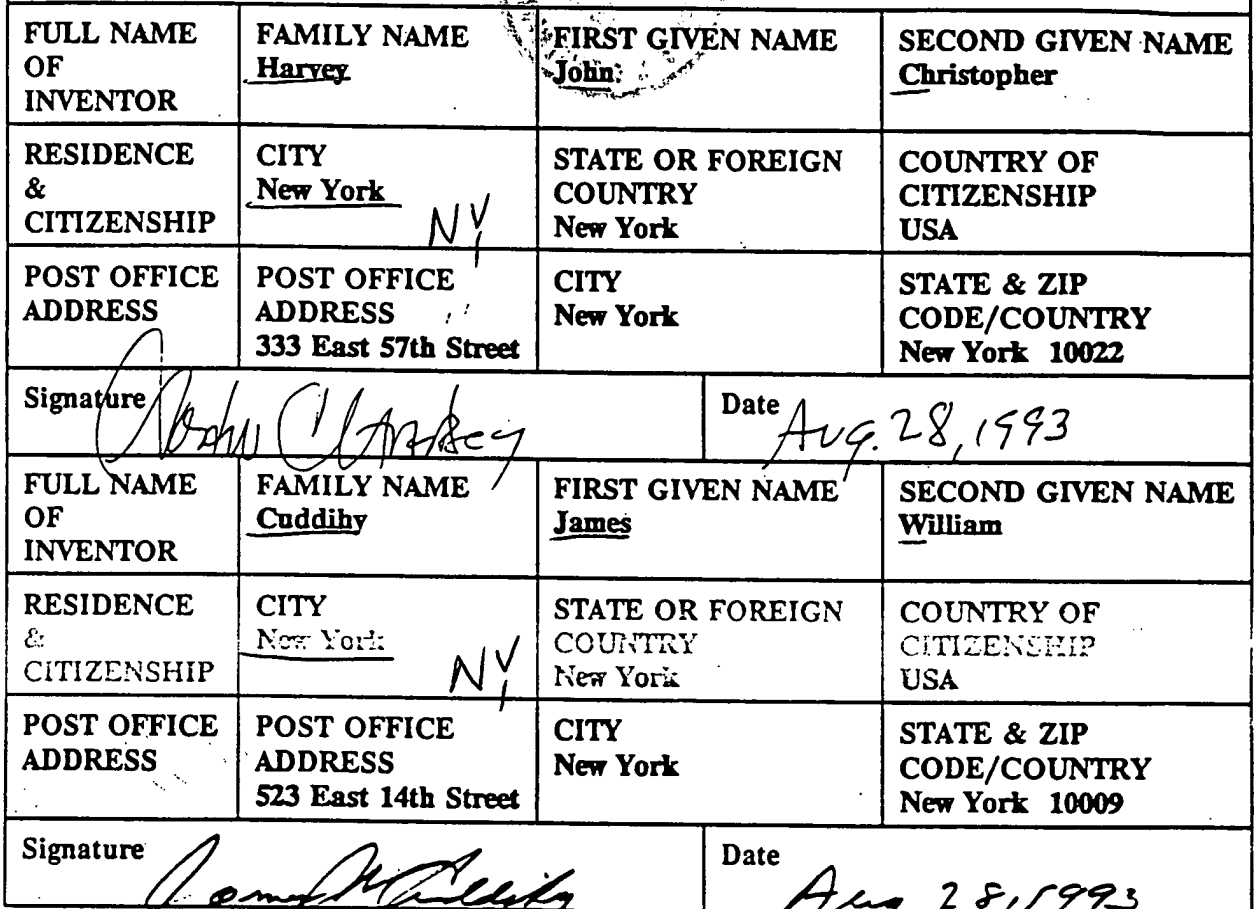 FULL NAME OF INVENTOR
FAMILY NAME
Harvey
FIRST GIVEN NAME
John
SECOND GIVEN NAME
Christopher
RESIDENCE & CITIZENSHIP
CITY
New York
NY
STATE OR FOREIGN COUNTRY
New York
COUNTRY OF CITIZENSHIP
USA
POST OFFICE ADDRESS
POST OFFICE ADDRESS
333 East 57th Street
CITY
New York
STATE & ZIP CODE/COUNTRY
New York 10022
Signature
John C Harvey
Date Aug. 28, 1993
FULL NAME OF INVENTOR
FAMILY NAME
Cuddihy
FIRST GIVEN NAME
James
SECOND GIVEN NAME
William
RESIDENCE & CITIZENSHIP
CITY
New York
NY
STATE OR FOREIGN COUNTRY
New York
COUNTRY OF CITIZENSHIP
USA
POST OFFICE ADDRESS
POST OFFICE ADDRESS
523 East 14th Street
CITY
New York
STATE & ZIP CODE/COUNTRY
New York 10009
Signature
James W Cuddihy
Date
Aug 28, 1993